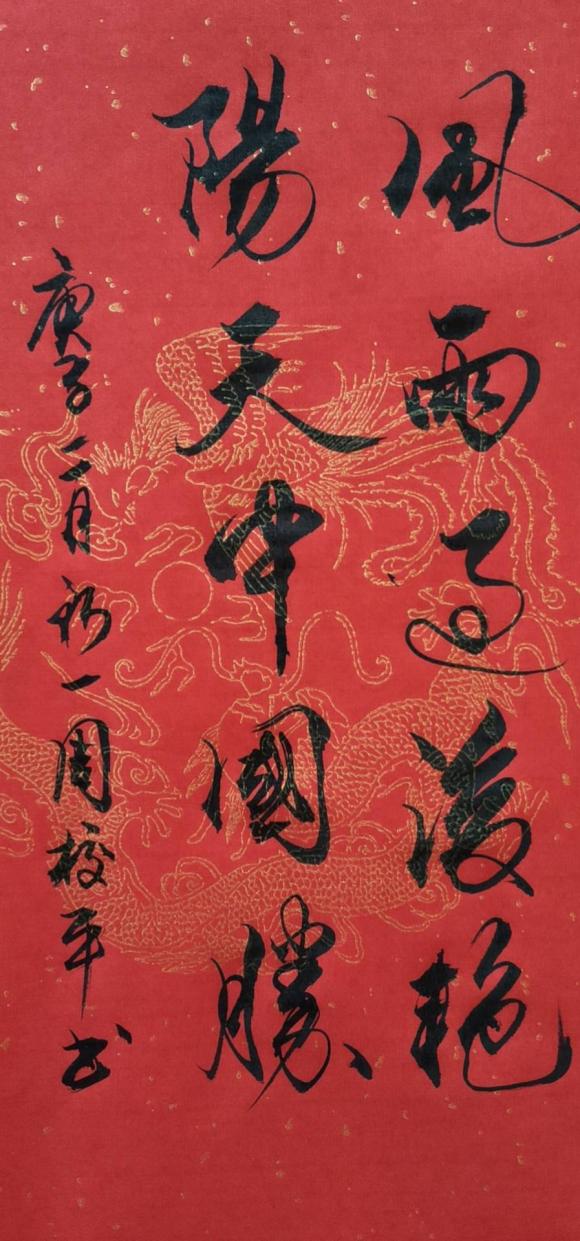 風雨過後艳
陽天中國勝
庚子二月初一周校平书